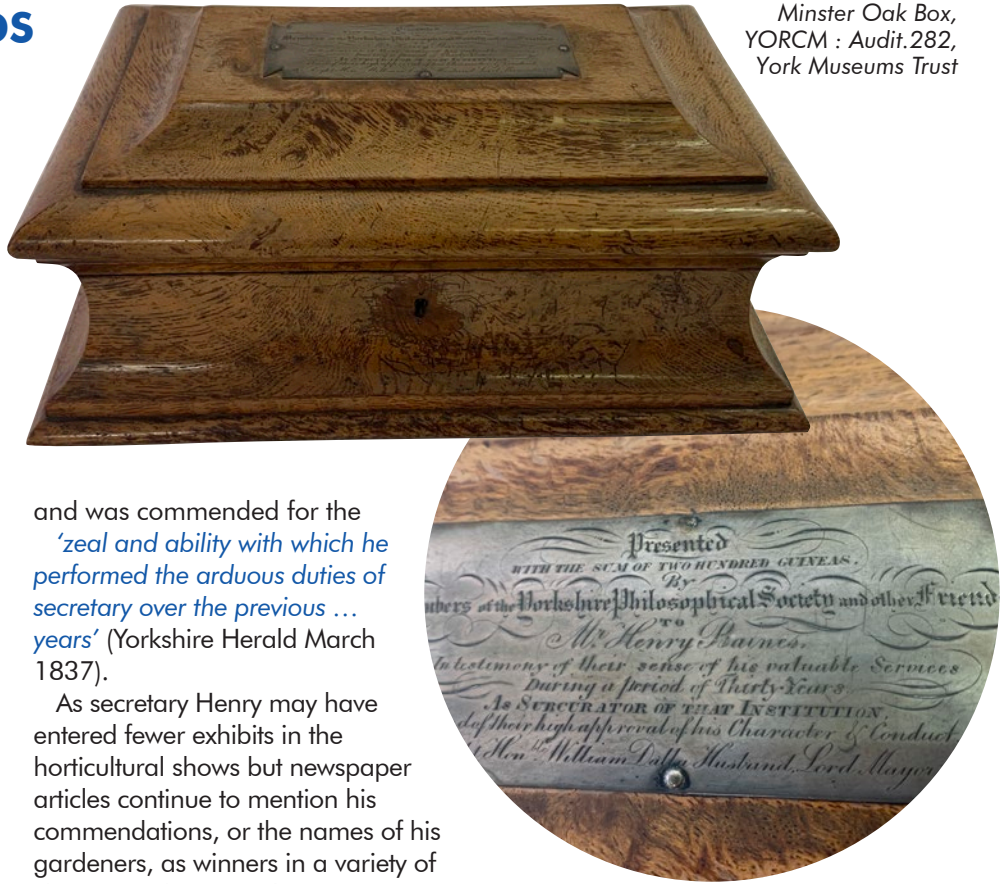 os
Minster Oak Box,
YORCM : Audit.282,
York Museums Trust
and was commended for the
‘zeal and ability with which he
performed the arduous duties of
secretary over the previous …
years’ (Yorkshire Herald March
1837).
As secretary Henry may have
entered fewer exhibits in the
horticultural shows but newspaper
articles continue to mention his
commendations, or the names of his
gardeners, as winners in a variety of
Presented
WITH THE SUM OF TWO HUNDRED GUINEAS.
By
mbers of the Yorkshire Philosophical Society and other Friend
TO
Mr. Henry Baines.
In testimony of their sense of his valuable Services
During a period of Thirty Years
AS SUBCURATOR OF THAT INSTITUTION,
d of their high approval of his Character & Conduct
t Honble William Dalla Husband, Lord Mayor